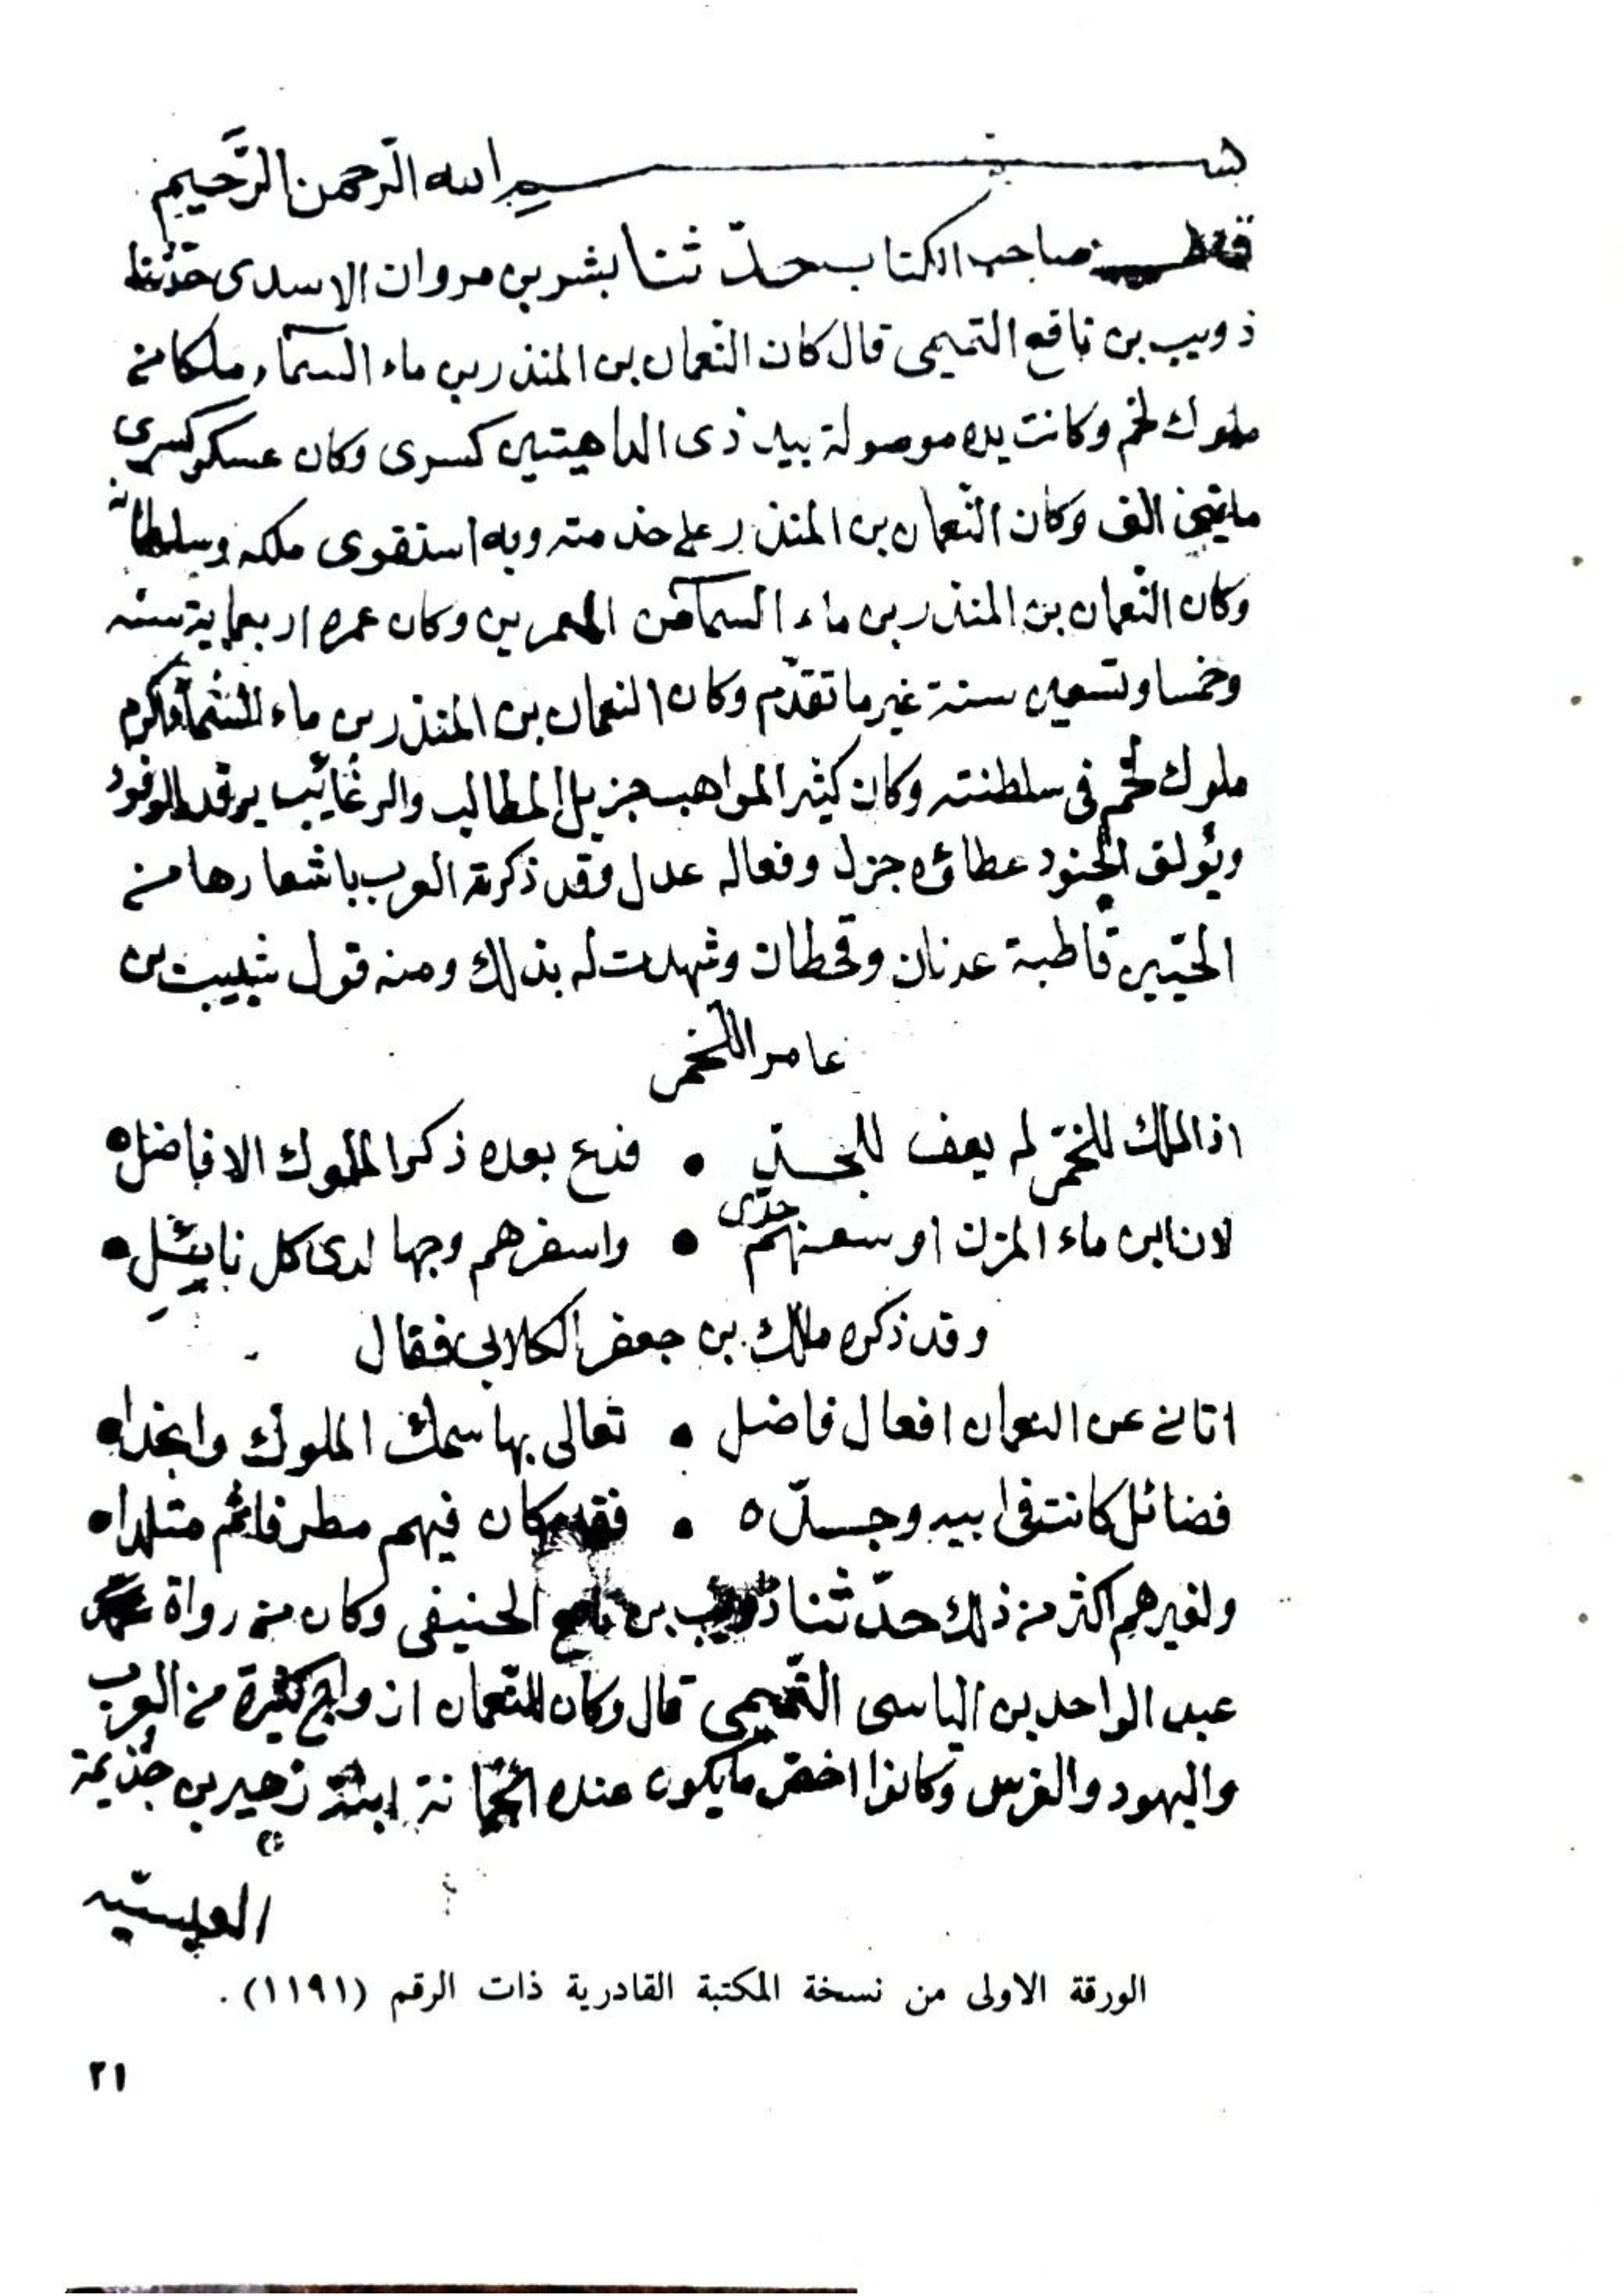 بسم الله الرحمن الرحيم
صاحب الكتاب حدّثنا بشر بن مروان الاسدى حدّثنا
ذويب بن نافع التميمى قال كان النعمان بن المنذر بن ماء السمآء ملكا من
ملوك لخم وكانت يده موصولة بيد ذى الداهيتين كسرى وكان عسكر كسرى
مايتى الف وكان النّعمان بن المنذر على خدمته وبه استقوى ملكه وسلطانه
وكان النّعمان بن المنذر بن ماء السمآء من المعمرين وكان عمره اربعماية سنه
وخمسا وتسعين سنة غير ما تقدّم وكان النعمان بن المنذر بن ماء السّمآء اكرم
ملوك لخم فى سلطنته وكان كثير المواهب جزيل المطالب والرغائب يرفد الوفود
ويؤلف الجنود عطاؤه جزل وفعاله عدل وقد ذكرته العرب باشعارها من
الحيّين قاطبة عدنان وقحطان وشهدت له بذلك ومنه قول شبيب بن
عامر اللخمى
اذا الملك اللخمى لم يعف للجـ ● فدع بعده ذكر الملوك الافاضل ●
لان ابن ماء المزن اوسعهم جدى ● واسفرهم وجها لدى كل نائل ●
وقد ذكره ملك بن جعفر الكلابى فقال
اتانى عن النعمان افعال فاضل ● تعالى بها سمك الملوك وانجدا ●
فضائل كانت فى ابيه وجدّه ● فقد كان فيهم مطرفا ثم متلدا ●
ولغيرهم اكثر من ذلك حدّثنا ذويب بن نافع الحنيفى وكان من رواة
عبد الواحد بن الياسى التّميمى قال وكان للنّعمان ازواج كثيرة من العرب
واليهود والفرس وكانوا اخص ما يكون عنده الجمانة ابنة زهير بن جذيمة
العبسيّه
الورقة الاولى من نسخة المكتبة القادرية ذات الرقم (١١٩١) .
٢١